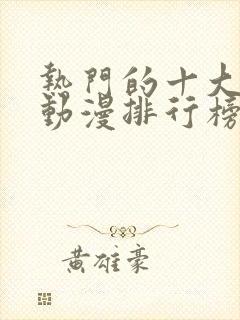 熱門的十大
動漫排行榜
黃雄豪